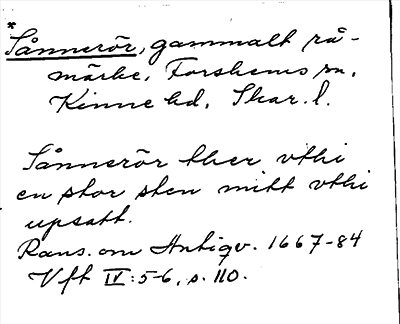 *
Sånnerör, gammalt rå-
märke, Forshems sn,
Kinne hd, Skar. l.
Sånnerör ther vthi
en stor sten mitt vthi
upsatt.
Rans. om Antiqv. 1667-84
Vft IV:5-6, s. 110.